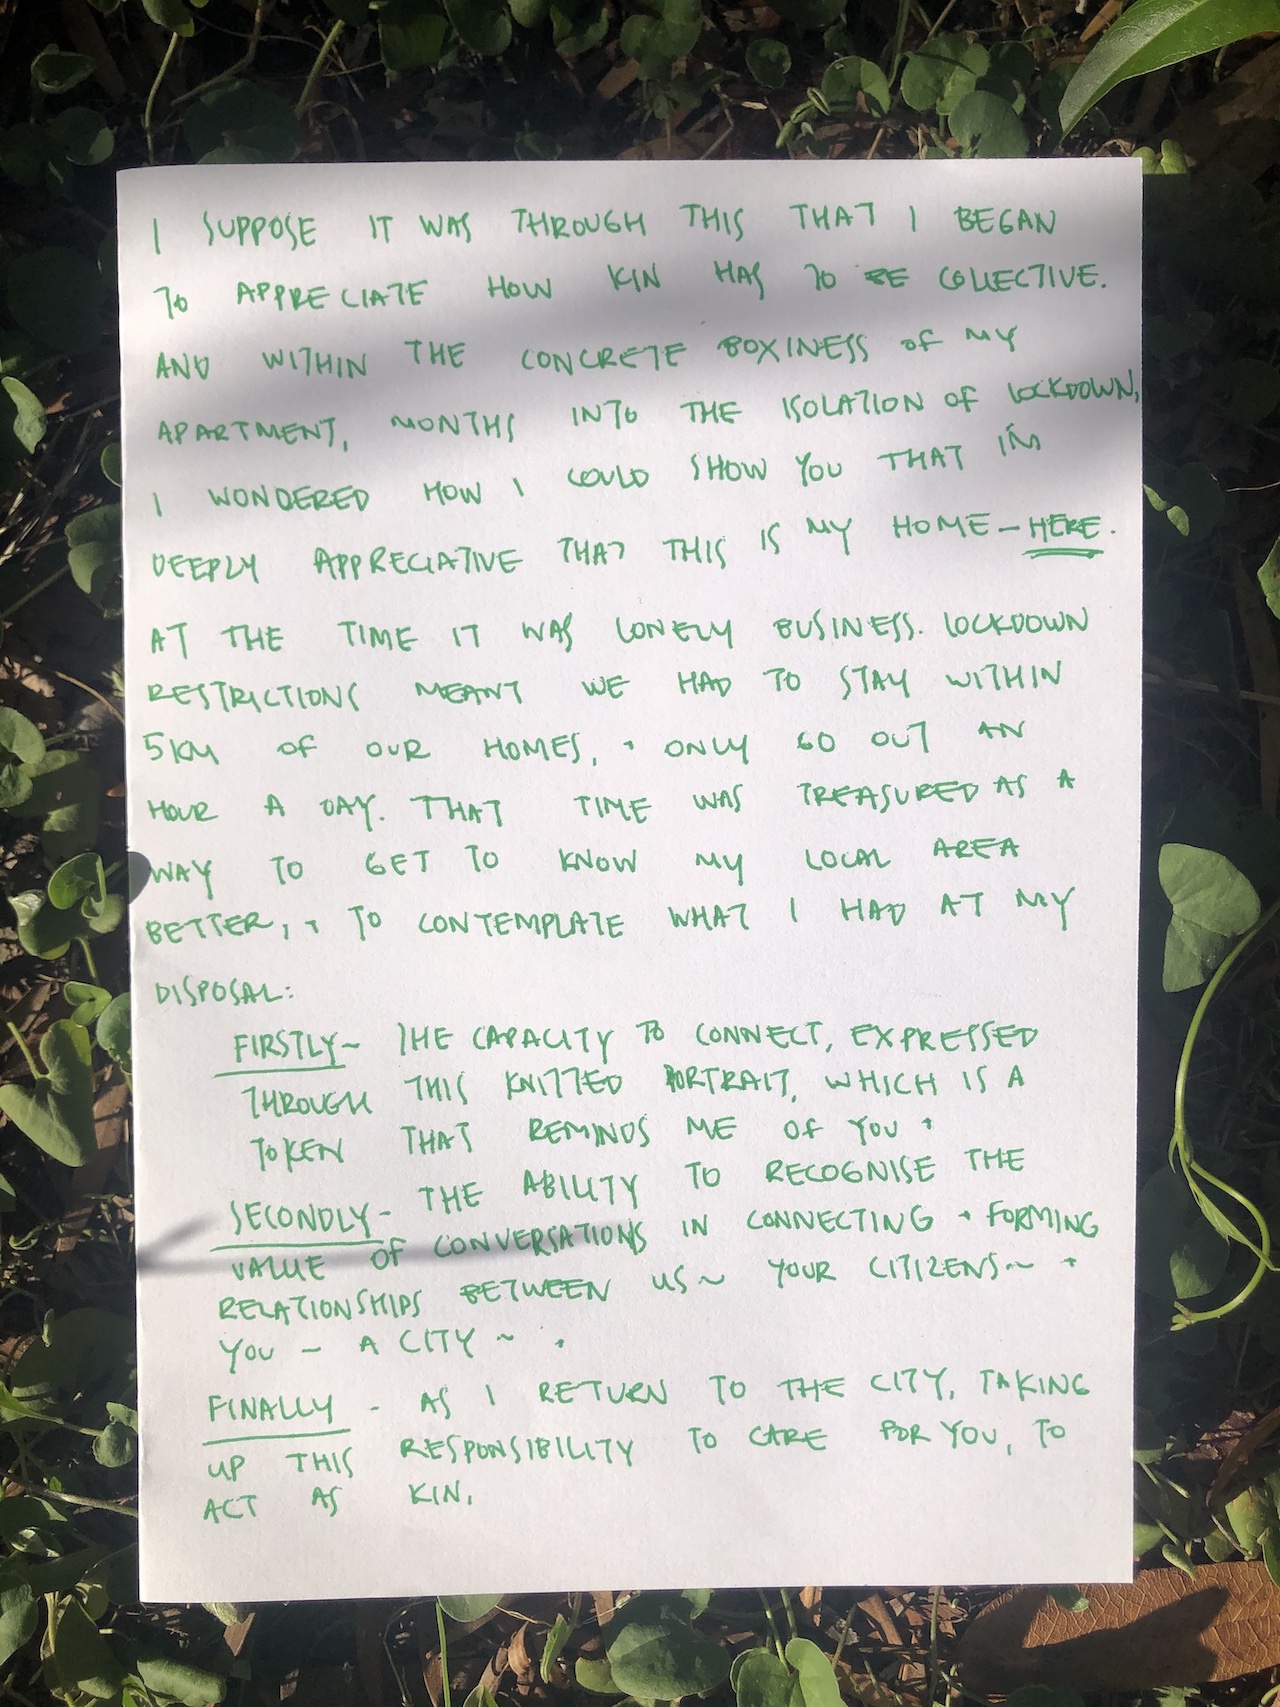 I SUPPOSE IT WAS THROUGH THIS THAT I BEGAN
TO APPRECIATE HOW KIN HAS TO BE COLLECTIVE.
AND WITHIN THE CONCRETE BOXINESS OF MY
APARTMENT, MONTHS INTO THE ISOLATION OF LOCKDOWN,
I WONDERED HOW I COULD SHOW YOU THAT I'M
DEEPLY APPRECIATIVE THAT THIS IS MY HOME - HERE.
AT THE TIME IT WAS LONELY BUSINESS. LOCKDOWN
RESTRICTIONS MEANT WE HAD TO STAY WITHIN
5KM OF OUR HOMES, + ONLY GO OUT AN
HOUR A DAY. THAT TIME WAS TREASURED AS A
WAY TO GET TO KNOW MY LOCAL AREA
BETTER, + TO CONTEMPLATE WHAT I HAD AT MY
DISPOSAL:
FIRSTLY ~ THE CAPACITY TO CONNECT, EXPRESSED
THROUGH THIS KNITTED PORTRAIT, WHICH IS A
TOKEN THAT REMINDS ME OF YOU +
SECONDLY - THE ABILITY TO RECOGNISE THE
VALUE OF CONVERSATIONS IN CONNECTING + FORMING
RELATIONSHIPS BETWEEN US ~ YOUR CITIZENS ~ +
YOU - A CITY ~ .
FINALLY - AS I RETURN TO THE CITY, TAKING
UP THIS RESPONSIBILITY TO CARE FOR YOU, TO
ACT AS KIN.